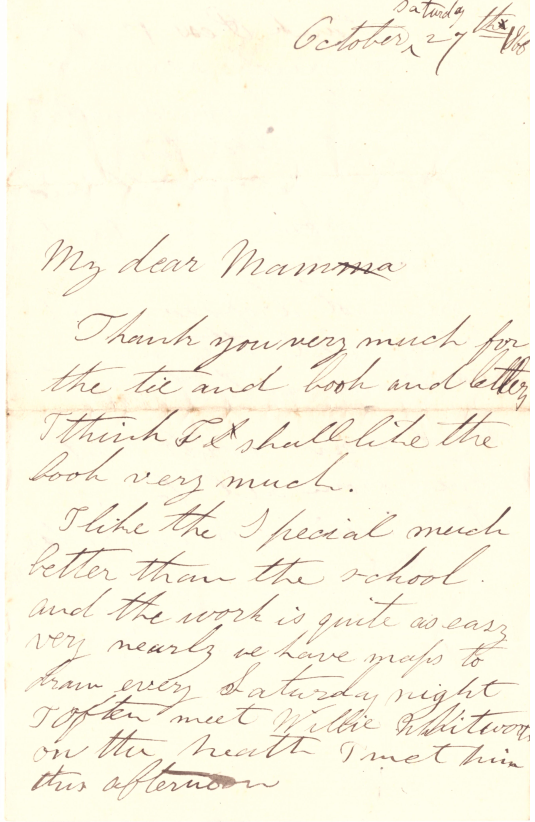 Saturday
October, 27th 186
My dear Mamma
Thank you very much for
the tie and book and letter
I think I shall like the
book very much.
I like the Special much
better than the school.
and the work is quite as easy
very nearly we have maps to
draw every Saturday night
I often meet Willie Whitworth
on the heath I met him
this afternoon